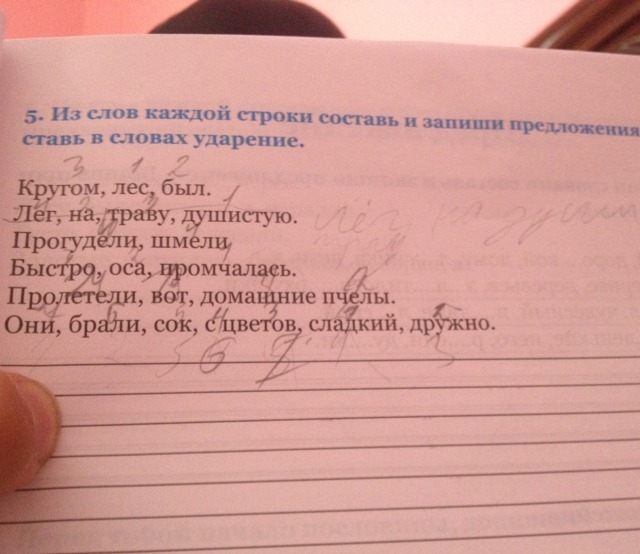 5. Из слов каждой строки составь и запиши предложения
ставь в словах ударение.
3 1 2
Кругом, лес, был.
Лёг, на, траву, душистую.
Лёг на души
Прогудели, шмели
Быстро, оса, промчалась.
Пролетели, вот, домашние пчелы.
Они, брали, сок, с цветов, сладкий, дружно.